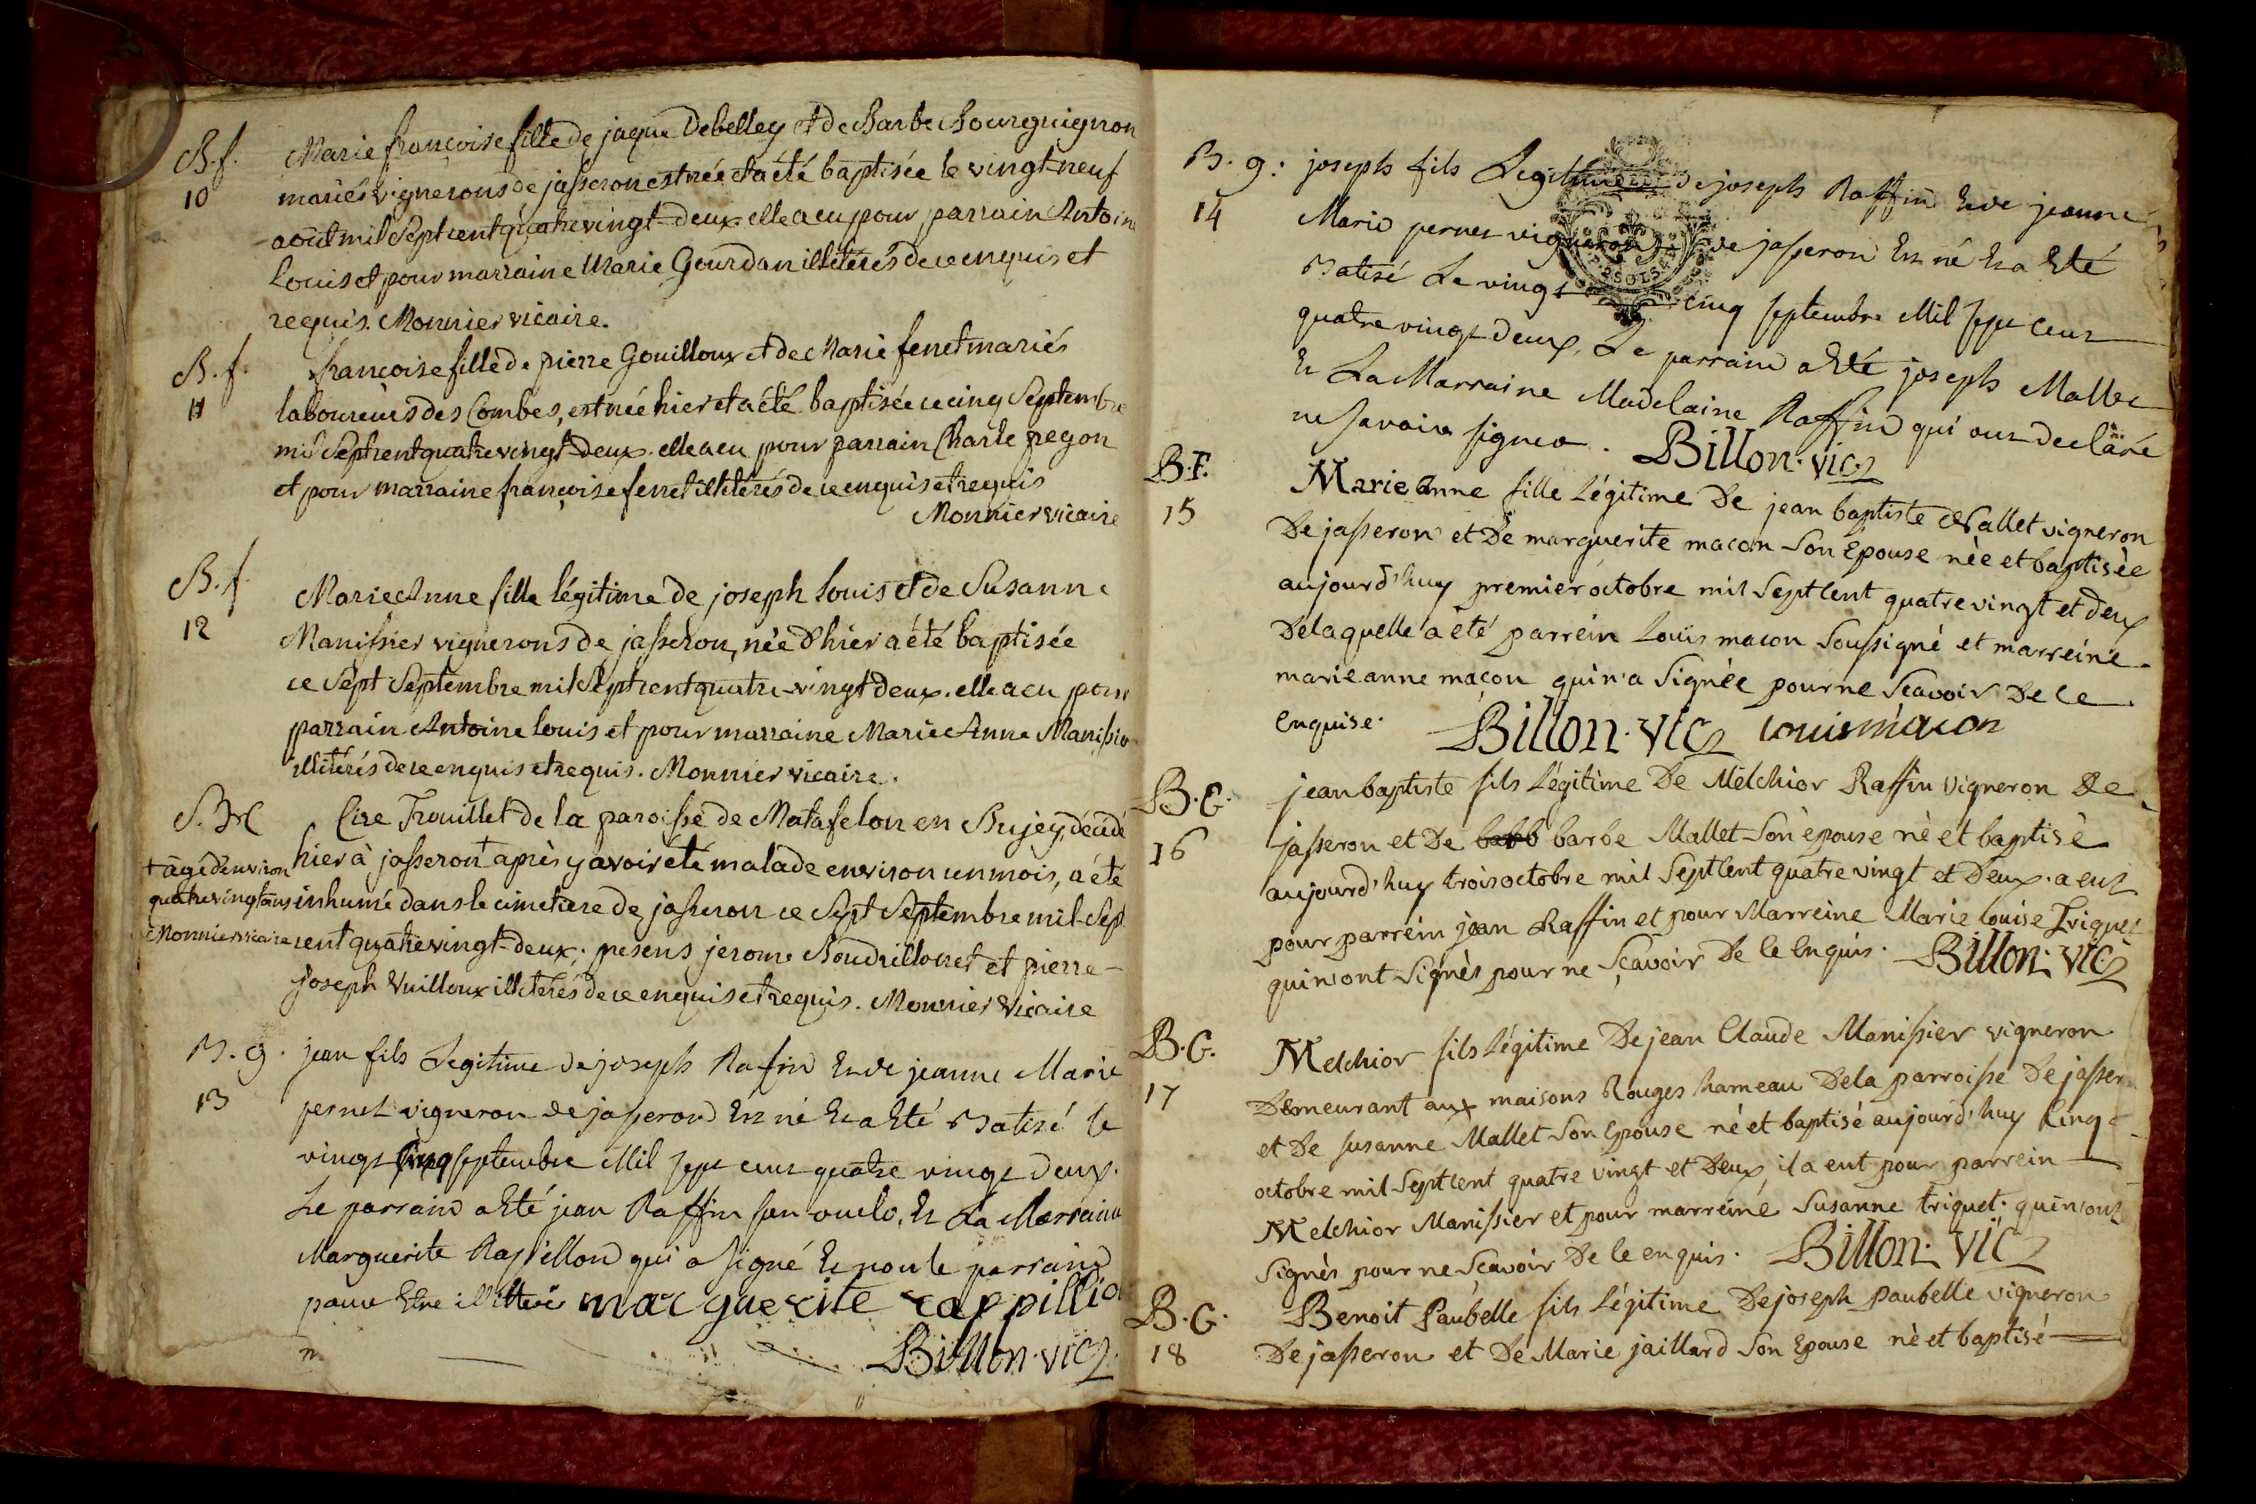 B. f. Marie françoise fille de jaque Debelley et de Barbe Bourguignon
10 mariés vignerons de jasseron est née et a été baptisée le vingt-neuf
août mil Sept cent quatre vingt-deux. elle a eu pour parrain Antoine
Louis et pour marraine Marie Gourdan illiterés de ce enquis et
requis. Monnier vicaire.
B. f. françoise fille de pierre Gouilloux et de Marie fenet mariés
11 laboureurs des Combes, est née hier et a été baptisée ce cinq Septembre
mil Sept cent quatre vingt-deux. elle a eu pour parrain Charle pegon
et pour marraine françoise fenet illiterés de ce enquis et requis
Monnier vicaire
B. f. Marie Anne fille légitime de joseph Louis et de Susanne
12 Manissier vignerons de jasseron, née d'hier a été baptisée
ce Sept Septembre mil Sept cent quatre-vingt deux. elle a eu pour
parrain Antoine Louis et pour marraine Marie Anne Manissier
illitérés de ce enquis et requis. Monnier vicaire.
S. Cire Trouillet de la paroisse de Matafelon en Bujey, décédé
hier à jasseron + après y avoir été malade environ un mois, a été
+ âgé d'environ
quatre vingt ans inhumé dans le cimetiere de jasseron ce Sept Septembre mil-Sept
Monnier vicaire cent quatre vingt-deux; presens jerome Boudrillonet et pierre-
joseph Vuilloux illiterés de ce enquis et requis. Monnier Vicaire
B. g. jean fils Legitime de joseph Rafin Et de jeanne Marie
13 pernet vigneron de jasseron Est né Et a Eté Batisé le
vingt cinq septembre Mil sept cent quatre vingt deux.
Le parrain a Eté jean Raffin son oncle, Et La Marraine
Marguerite Rapillon qui a signé Et non le parrain
pour Etre illitteré marguerite rappillion
Billon. vic.
B. g: joseph fils Legitime de joseph Raffin Et de jeanne
14 Marie pernet vigneron de jasseron Est né Et a Eté
Batisé Le vingt cinq septembre Mil sept cent
quatre vingt deux, Le parrain a Eté joseph Mallet
Et La Marraine Madelaine Raffin qui ont declaré
ne savoir signer. Billon. vic.
B. F. Marie Anne fille légitime De jean baptiste Mallet vigneron
15 De jasseron et De marguerite macon Son Epouse nèe et baptisèe
aujourd'huy premier octobre mil Sept Cent quatre vingt et deux
De laquelle a été parrein Louis macon Soussigné et marreine
marie anne maçon qui n'a Signée pour ne Scavoir De ce
enquise. Billon. vic louis macon
B. G. jean baptiste fils légitime De Melchior Raffin vigneron De
16 jasseron et De barbe Mallet Son èpouse nè et baptisè
aujourd'huy trois octobre mil Sept Cent quatre vingt et Deux. a eut
pour parrein jean Raffin et pour Marreine Marie louise Triquet
qui n'ont Signès pour ne Sçavoir De ce enquis. Billon. vic
B. G. Melchior fils légitime De jean Claude Manissier vigneron
17 Demeurant aux maisons Rouges hameau De la parroisse De jasseron
et De susanne Mallet Son Epouse né et baptisé aujourd'huy Cinq
octobre mil Sept Cent quatre vingt et Deux, il a eut pour parrein
Melchior Manissier et pour marreine Susanne triquet. qui n'ont
Signès pour ne Scavoir De ce enquis. Billon. vic
B. G. Benoit Paubelle fils légitime De joseph paubelle vigneron
18 De jasseron et De Marie jaillard Son Epouse nè et baptisé